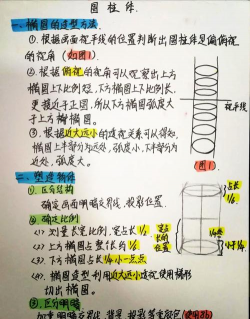 圆柱体.
一.椭圆的造型方法.
①.根据画面视平线的位置判断出圆柱体是偏俯视
的视角(如图1).
②.根据俯视的视角可以观察出上方
椭圆上下比例短,下方椭圆上下比例长,
更接近于正圆,所以下方椭圆弧度大
于上方椭圆.
视平线
③.根据近大远小的透视关系可以得知,
椭圆上半部分为远处,弧度小,下半部分为
近处,弧度大.
(图1)
二.塑造物体
①.区分结构
确定画面明暗交界线,投影位置.
②.确定比例
(1).测量长宽比例,宽占长1/2
(2).上方椭圆占整体的1/6
(3).下方椭圆占长1/4小一点点
(4).椭圆造型利用近大远小透视使用梯形
切出椭圆.
③.区分明暗
占长
1/6